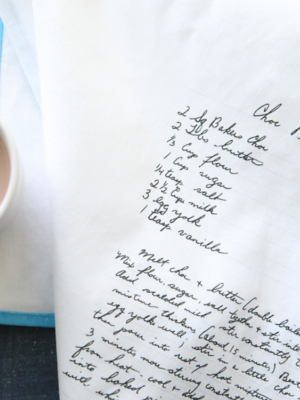 Choc
2 Sq Bakers Choc
2 Tbs butter
1/3 Cup flour
1 Cup sugar
1/4 teasp salt
2 1/2 Cup milk
3 egg yolk
1 teasp vanilla
Melt choc + butter (double boil
Mix flour, sugar, and salt + stir
Add scalded milk stir constantly
mixture thickens (about 15 mins)
egg yolk well stir in a little choc
then pour into rest of hot mixture
3 minutes more stirring constantly
from heat, cool + add
into baked pie
with